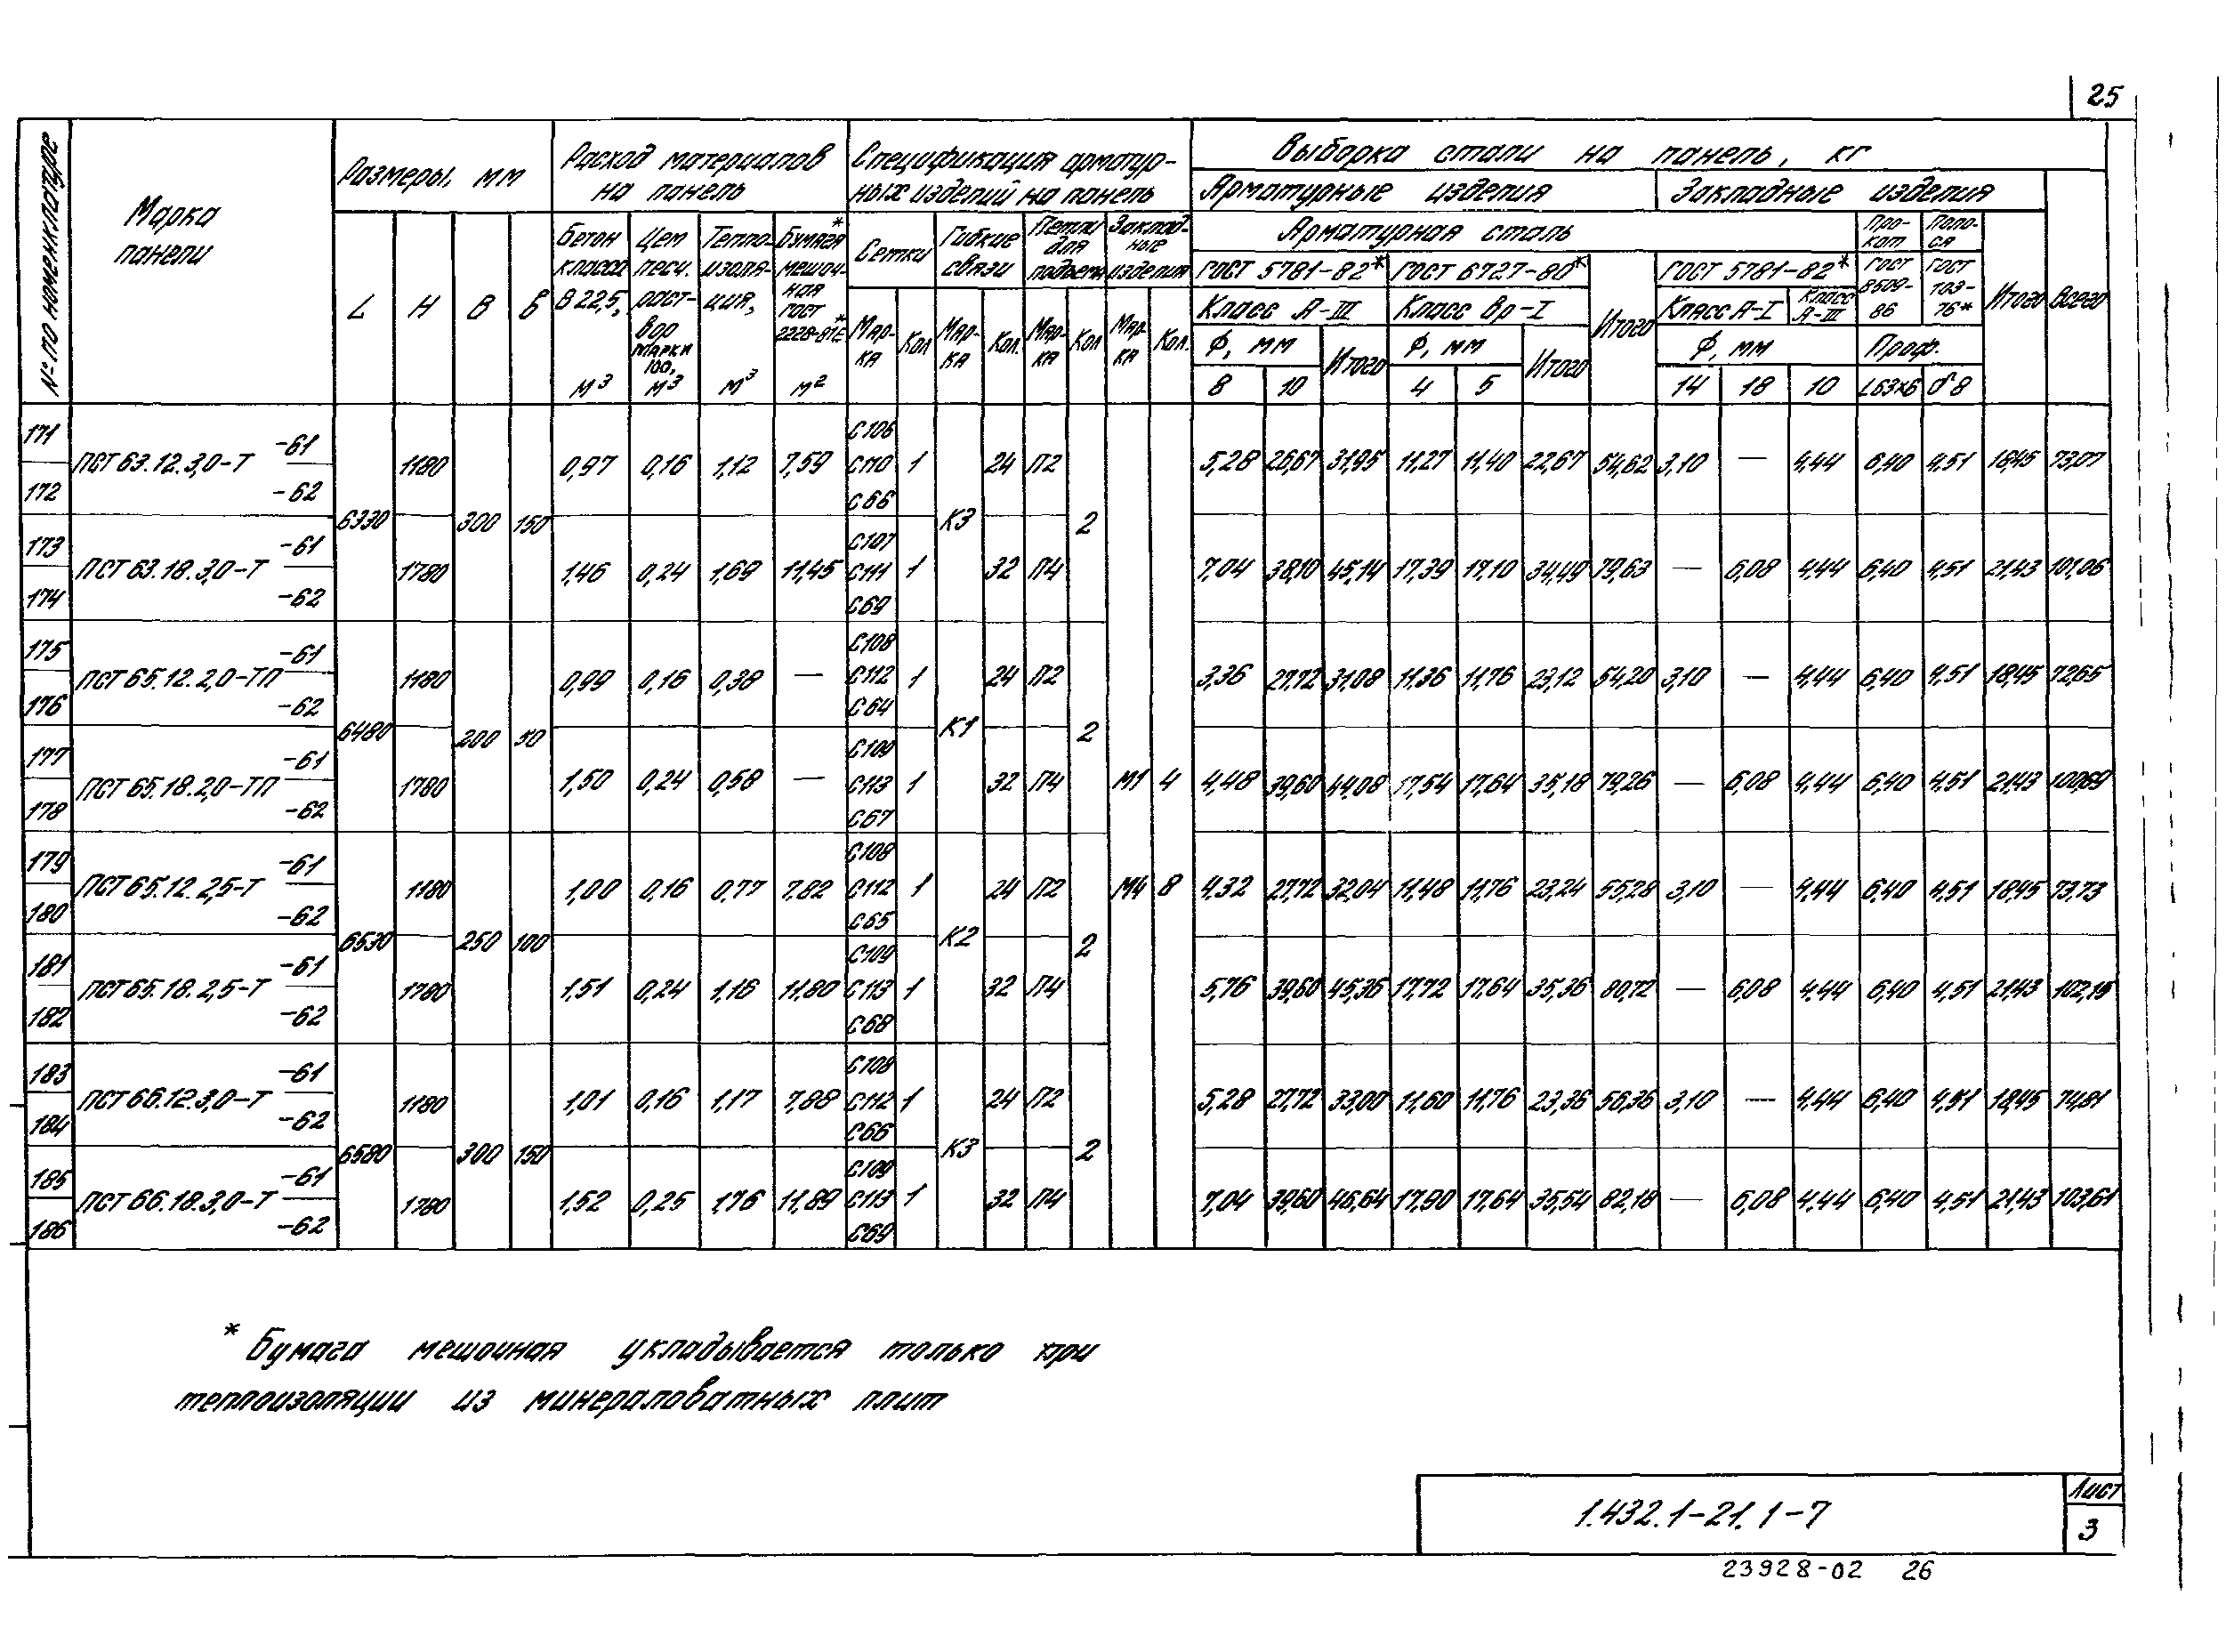 25
№ по номенклатуре
Марка панели
Размеры, мм
L H B б
Расход материалов на панель
Бетон класса В 22,5, м³
Цем песч. раствор марки 100, м³
Теплоизоляция, м³
Бумага* мешочная ГОСТ 2228-81Е* м²
Спецификация арматурных изделий на панель
Сетки Марка Кол
Гибкие связи Марка Кол.
Петли для подъема Марка Кол
Закладные изделия Марка Кол.
Выборка стали на панель, кг
Арматурные изделия
Закладные изделия
Арматурная сталь
Прокат ГОСТ 8509-86
Полоса ГОСТ 103-76*
ГОСТ 5781-82* ГОСТ 6727-80* ГОСТ 5781-82*
Класс А-III Класс Вр-I Итого Класс А-I Класс А-III Итого Всего
Ф, мм Итого Ф, мм Итого Ф, мм Проф.
8 10 4 5 14 18 10 L63×6 δ8
171 ПСТ 63.12.3,0-Т -61
172 -62
6330 1180 300 150 0,97 0,16 1,12 7,59 С106 С110 С66 1 К3 24 П2 2 5,28 26,67 31,95 11,27 11,40 22,67 54,62 3,10 — 4,44 6,40 4,51 18,45 73,07
173 ПСТ 63.18.3,0-Т -61
174 -62
1780 1,46 0,24 1,69 11,45 С107 С111 С69 1 32 П4 7,04 38,10 45,14 17,39 17,10 34,49 79,63 — 6,08 4,44 6,40 4,51 21,43 101,06
175 ПСТ 65.12.2,0-ТП -61
176 -62
6480 1180 200 50 0,99 0,16 0,38 — С108 С112 С64 1 К1 24 П2 2 3,36 27,72 31,08 11,36 11,76 23,12 54,20 3,10 — 4,44 6,40 4,51 18,45 72,65
177 ПСТ 65.18.2,0-ТП -61
178 -62
1780 1,50 0,24 0,58 — С109 С113 С67 1 32 П4 М1 4 4,48 39,60 44,08 17,54 17,64 35,18 79,26 — 6,08 4,44 6,40 4,51 21,43 100,69
179 ПСТ 65.12.2,5-Т -61
180 -62
6530 1180 250 100 1,00 0,16 0,77 7,82 С108 С112 С65 1 К2 24 П2 2 М4 8 4,32 27,72 32,04 11,48 11,76 23,24 55,28 3,10 — 4,44 6,40 4,51 18,45 73,73
181 ПСТ 65.18.2,5-Т -61
182 -62
1780 1,51 0,24 1,16 11,80 С109 С113 С68 1 32 П4 5,76 39,60 45,36 17,72 17,64 35,36 80,72 — 6,08 4,44 6,40 4,51 21,43 102,15
183 ПСТ 66.12.3,0-Т -61
184 -62
6580 1180 300 150 1,01 0,16 1,17 7,88 С108 С112 С66 1 К3 24 П2 2 5,28 27,72 33,00 11,60 11,76 23,36 56,36 3,10 — 4,44 6,40 4,51 18,45 74,81
185 ПСТ 66.18.3,0-Т -61
186 -62
1780 1,52 0,25 1,76 11,89 С109 С113 С69 1 32 П4 7,04 39,60 46,64 17,90 17,64 35,54 82,18 — 6,08 4,44 6,40 4,51 21,43 103,61
* Бумага мешочная укладывается только при
теплоизоляции из минераловатных плит
1.432.1-21.1-7
Лист
3
23928-02 26